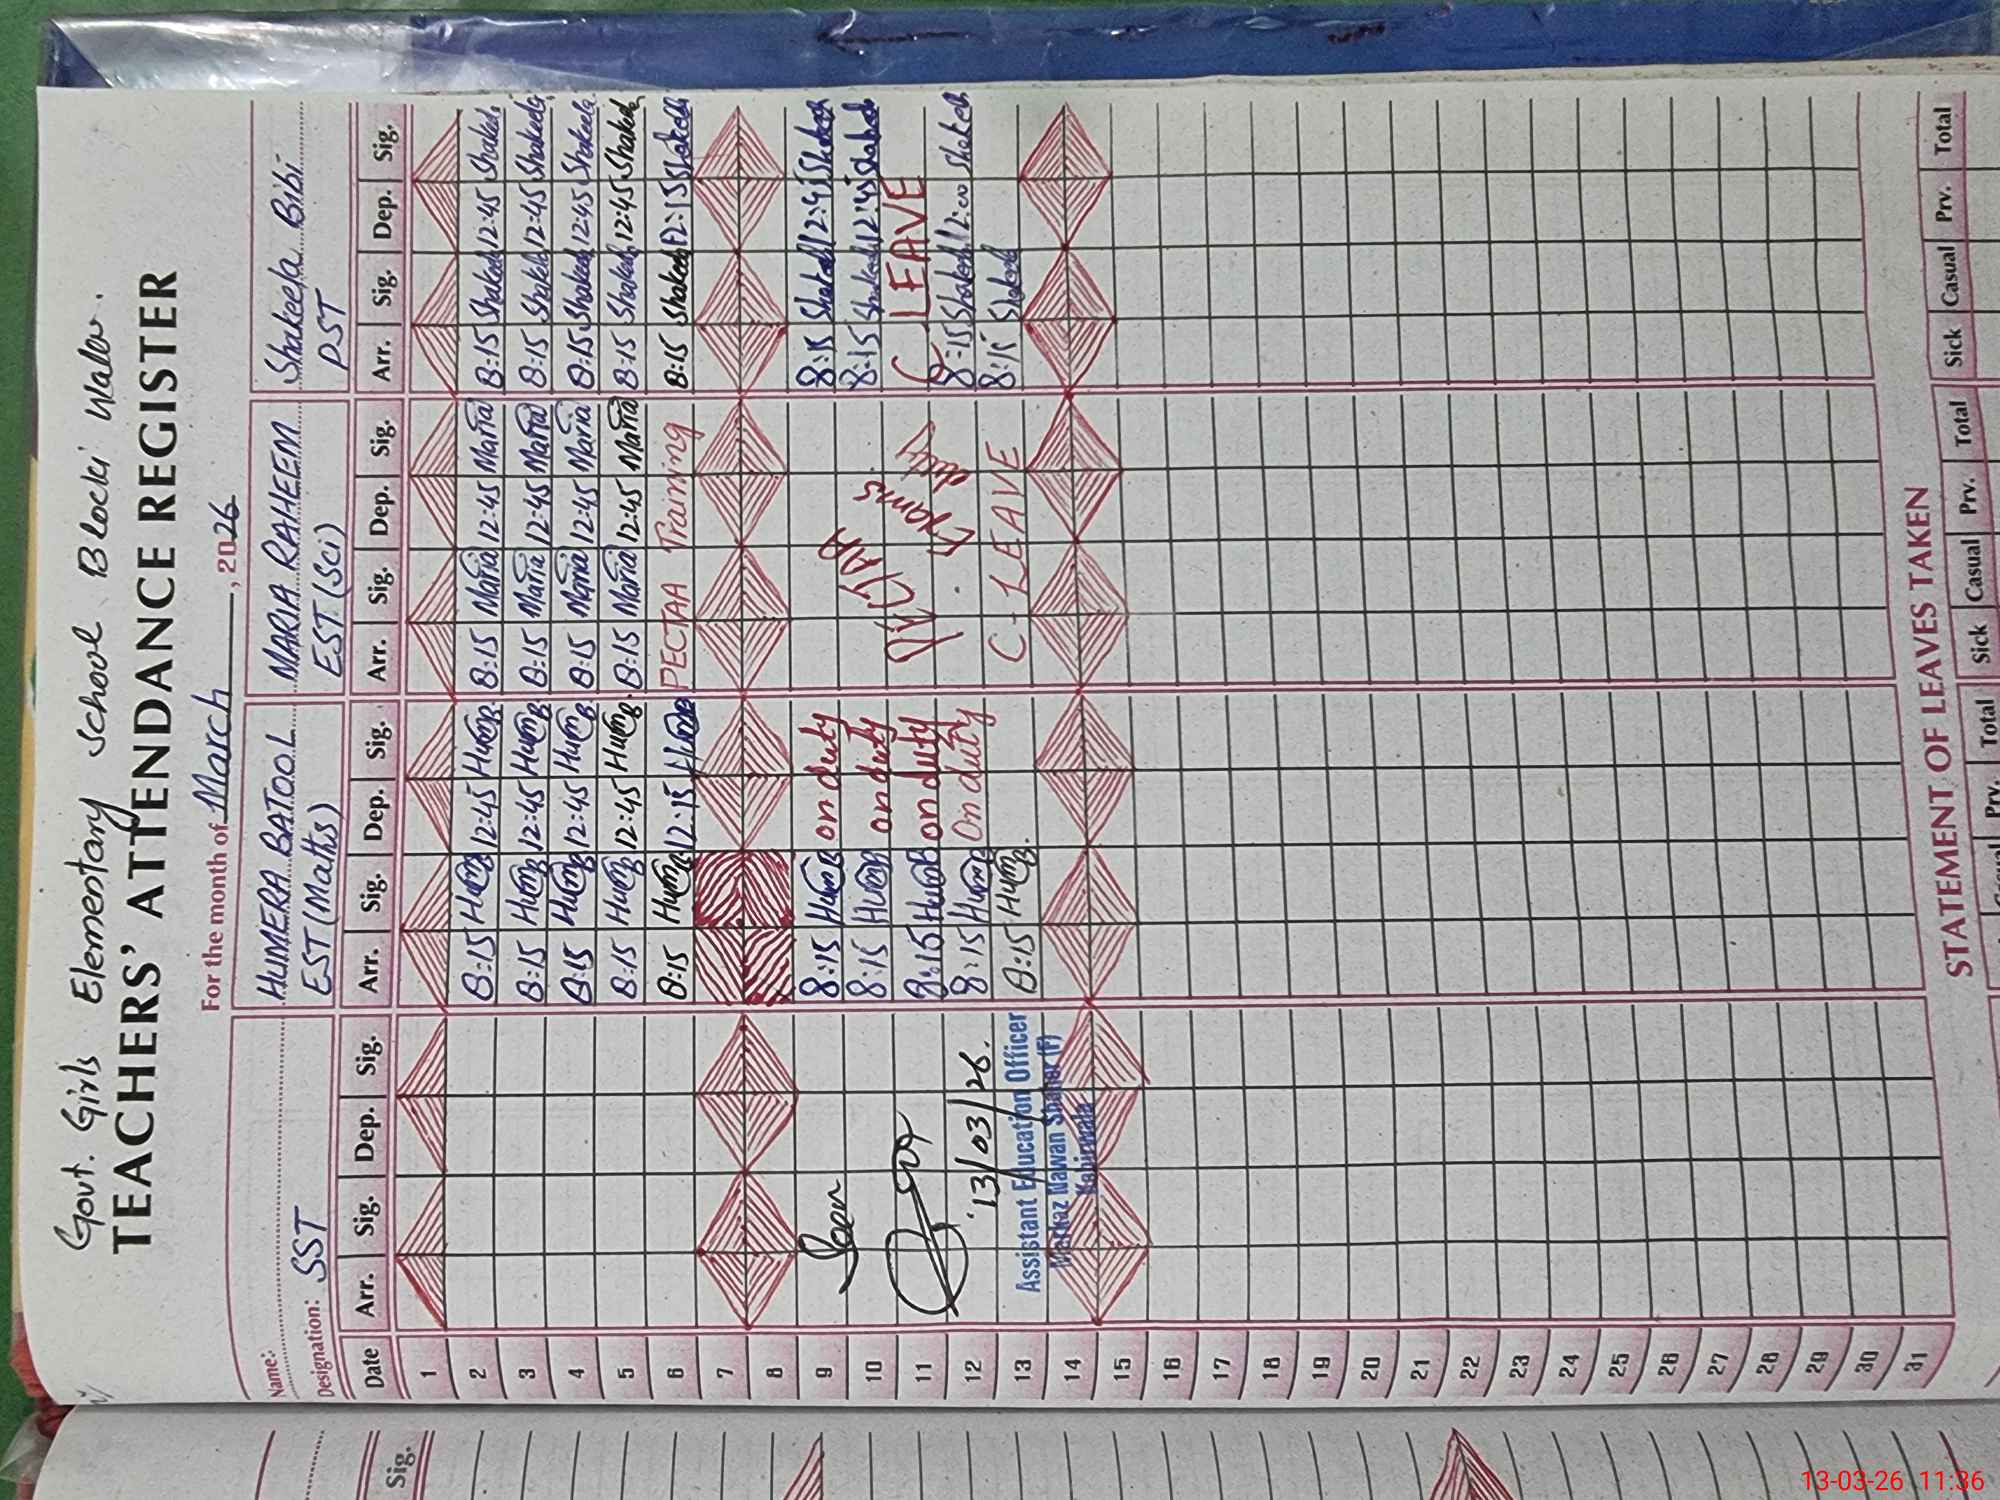 Govt. Girls Elementary School Blocki Wala.
TEACHERS' ATTENDANCE REGISTER
For the month of March, 2026
Name: HUMERA BATOOL MARIA RAHEEM Shakeela Bibi
Designation: SST EST (Maths) EST (Sci) PST
Date Arr. Sig. Dep. Sig. Arr. Sig. Dep. Sig. Arr. Sig. Dep. Sig. Arr. Sig. Dep. Sig.
1
2 8:15 Huma 12:45 Huma 8:15 Maria 12:45 Maria 8:15 Shakeela 12:45 Shakeela
3 8:15 Huma 12:45 Huma 8:15 Maria 12:45 Maria 8:15 Shakeela 12:45 Shakeela
4 8:15 Huma 12:45 Huma 8:15 Maria 12:45 Maria 8:15 Shakeela 12:45 Shakeela
5 8:15 Huma 12:45 Huma 8:15 Maria 12:45 Maria 8:15 Shakeela 12:45 Shakeela
6 8:15 Huma 12:15 Huma PECTAA Training 8:15 Shakeela 12:15 Shakeela
7
8
9 Seen 8:15 Huma on duty 8:15 Shakeela 12:45 Shakeela
10 8:15 Huma on duty 8:15 Shakeela 12:45 Shakeela
11 8:15 Huma on duty Exams duty C LEAVE
12 13/03/26. 8:15 Huma On duty 8:15 Shakeela 12:00 Shakeela
13 8:15 Huma. C-LEAVE 8:15 Shakeela
Assistant Education Officer
Markaz Nawan Shaher (F)
Kabirwala
14
15
16
17
18
19
20
21
22
23
24
25
26
27
28
29
30
31
STATEMENT OF LEAVES TAKEN
Casual Prv. Total Sick Casual Prv. Total Sick Casual Prv. Total
Sig.
13-03-26 11:36